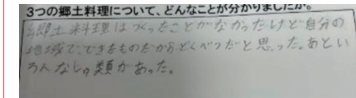 3つの郷土料理について、どんなことが分かりましたか。
郷土料理はつくったことがなかったけど自分の
地域で、できたものだからとくべつだと思った。あとい
ろんなしの類があった。